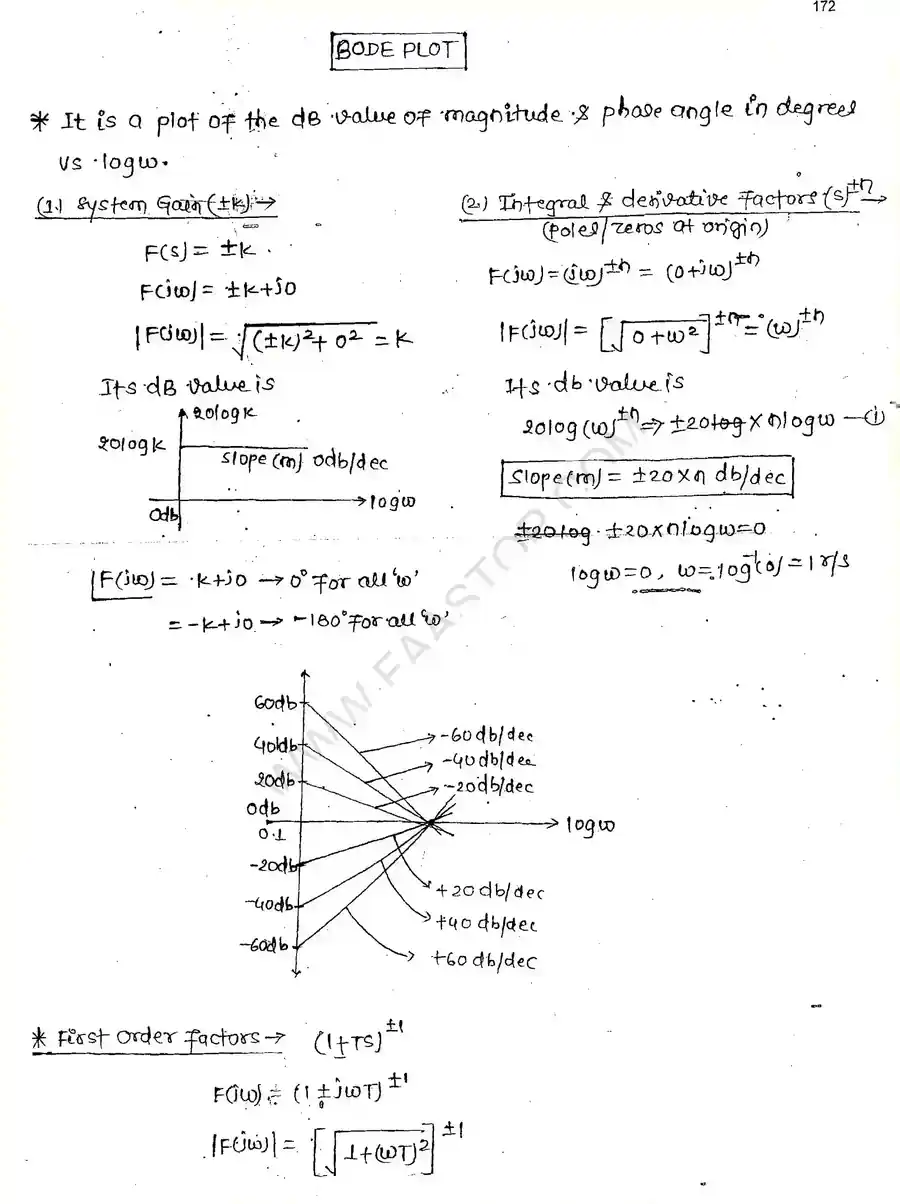 172
BODE PLOT
* It is a plot of the dB value of magnitude & phase angle in degrees
vs logω.
(1.) System Gain (±k) →
F(s) = ±k
F(jω) = ±k+j0
|F(jω)| = √((±k)²+0²) = k
Its dB value is
20logk
20logk
slope (m) 0db/dec
0db
→ logω
∠F(jω) = k+j0 → 0° for all 'ω'
= -k+j0 → -180° for all 'ω'
(2.) Integral & derivative factors (s)^±n →
(poles/zeros at origin)
F(jω) = (jω)^±n = (0+jω)^±n
|F(jω)| = [√(0+ω²)]^±n = (ω)^±n
Its db value is
20log(ω)^±n ⇒ ±20log × nlogω —(i)
slope(m) = ±20×n db/dec
±20log ±20×nlogω=0
logω=0, ω=log⁻¹(0)=1 r/s
60db
40db
20db
0db
0.1
-20db
-40db
-60db
-60db/dec
-40db/dec
-20db/dec
→ logω
+20db/dec
+40db/dec
+60db/dec
* First Order factors → (1±Ts)^±1
F(jω) = (1±jωT)^±1
|F(jω)| = [√(1+(ωT)²)]^±1
WWW.FAASTOP.COM